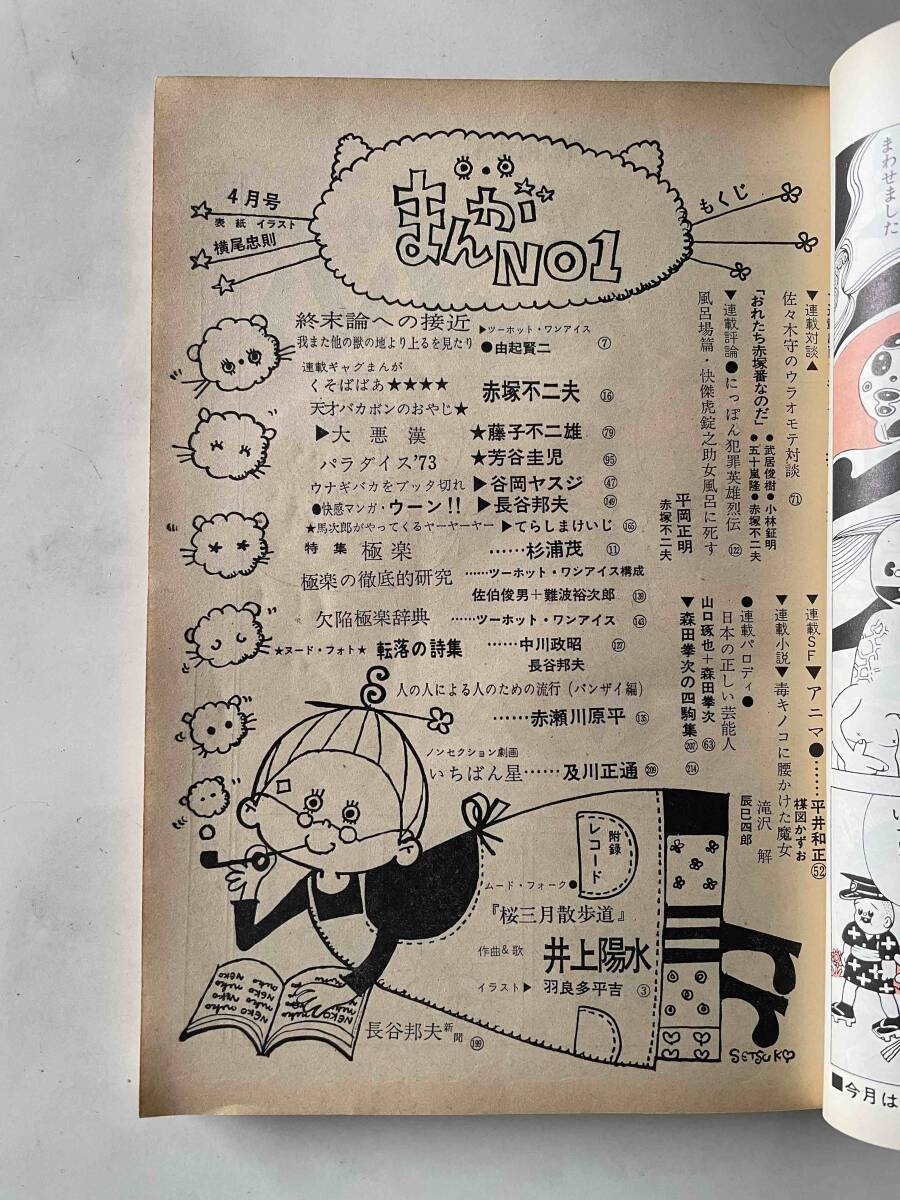 まんが NO1
もくじ
4月号
表紙 イラスト
横尾忠則
終末論への接近 ▶ツーホット・ワンアイス
我また他の獣の地より上るを見たり ●由起賢二 ⑦
連載ギャグまんが
くそばばあ★★★★ 赤塚不二夫 ⑯
天才バカボンのおやじ★
▶大悪漢 ★藤子不二雄 79
パラダイス'73 ★芳谷圭児 95
ウナギバカをブッタ切れ ▶谷岡ヤスジ ㊼
●快感マンガ・ウーン!! ▶長谷邦夫 149
★馬次郎がやってくるヤーヤーヤー ▶てらしまけいじ 165
特集 極楽 ……杉浦茂 ⑪
極楽の徹底的研究 ……ツーホット・ワンアイス構成
佐伯俊男+難波裕次郎 139
欠陥極楽辞典 ……ツーホット・ワンアイス 143
★ヌード・フォト★ 転落の詩集 ……中川政昭 127
長谷邦夫
人の人による人のための流行(バンザイ編)
……赤瀬川原平 135
ノンセクション劇画
いちばん星……及川正通 209
▼連載対談▲
佐々木守のウラオモテ対談 71
「おれたち赤塚番なのだ」 ●武居俊樹 ●小林鉦明
●五十嵐隆 ●赤塚不二夫
▼連載評論●にっぽん犯罪英雄烈伝 122
風呂場篇・快傑虎錠之助女風呂に死す
平岡正明
赤塚不二夫
▼連載SF▼アニマ●……平井和正 52
楳図かずお
▼連載小説▼毒キノコに腰かけた魔女
滝沢 解
辰巳四郎
214
●連載パロディ●
日本の正しい芸能人
山口琢也+森田拳次 63
▼森田拳次の四駒集 207
附録
レコード
ムード・フォーク●
『桜三月散歩道』
作曲&歌 井上陽水
イラスト▶ 羽良多平吉 ③
長谷邦夫新聞 199
NEKO
neko
SETSUKO
まわせました
■今月は